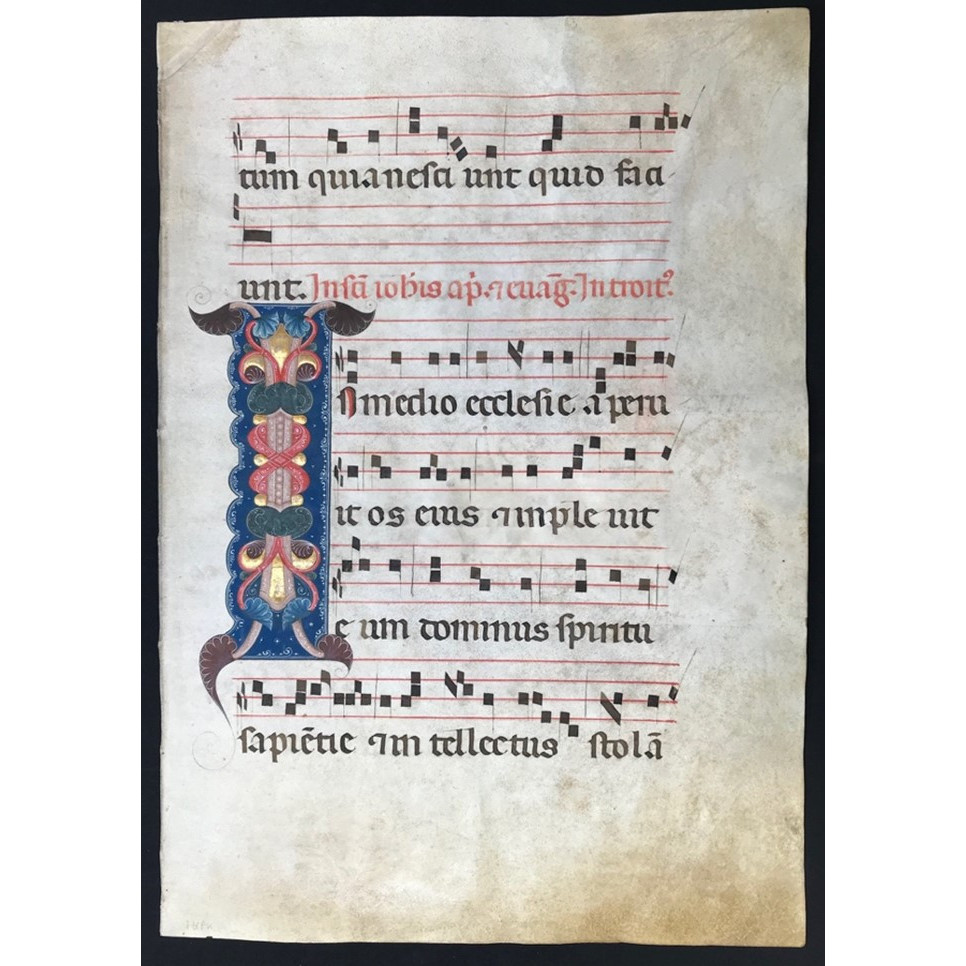 tum quia nesci unt quid faci
unt. In scī iohīs ap. ⁊ euāg. Introit᷒.
In medio ecclesie aperu
it os eius ⁊ imple uit
e um dominus spiritu
sapiētie ⁊ in tellectus stolā